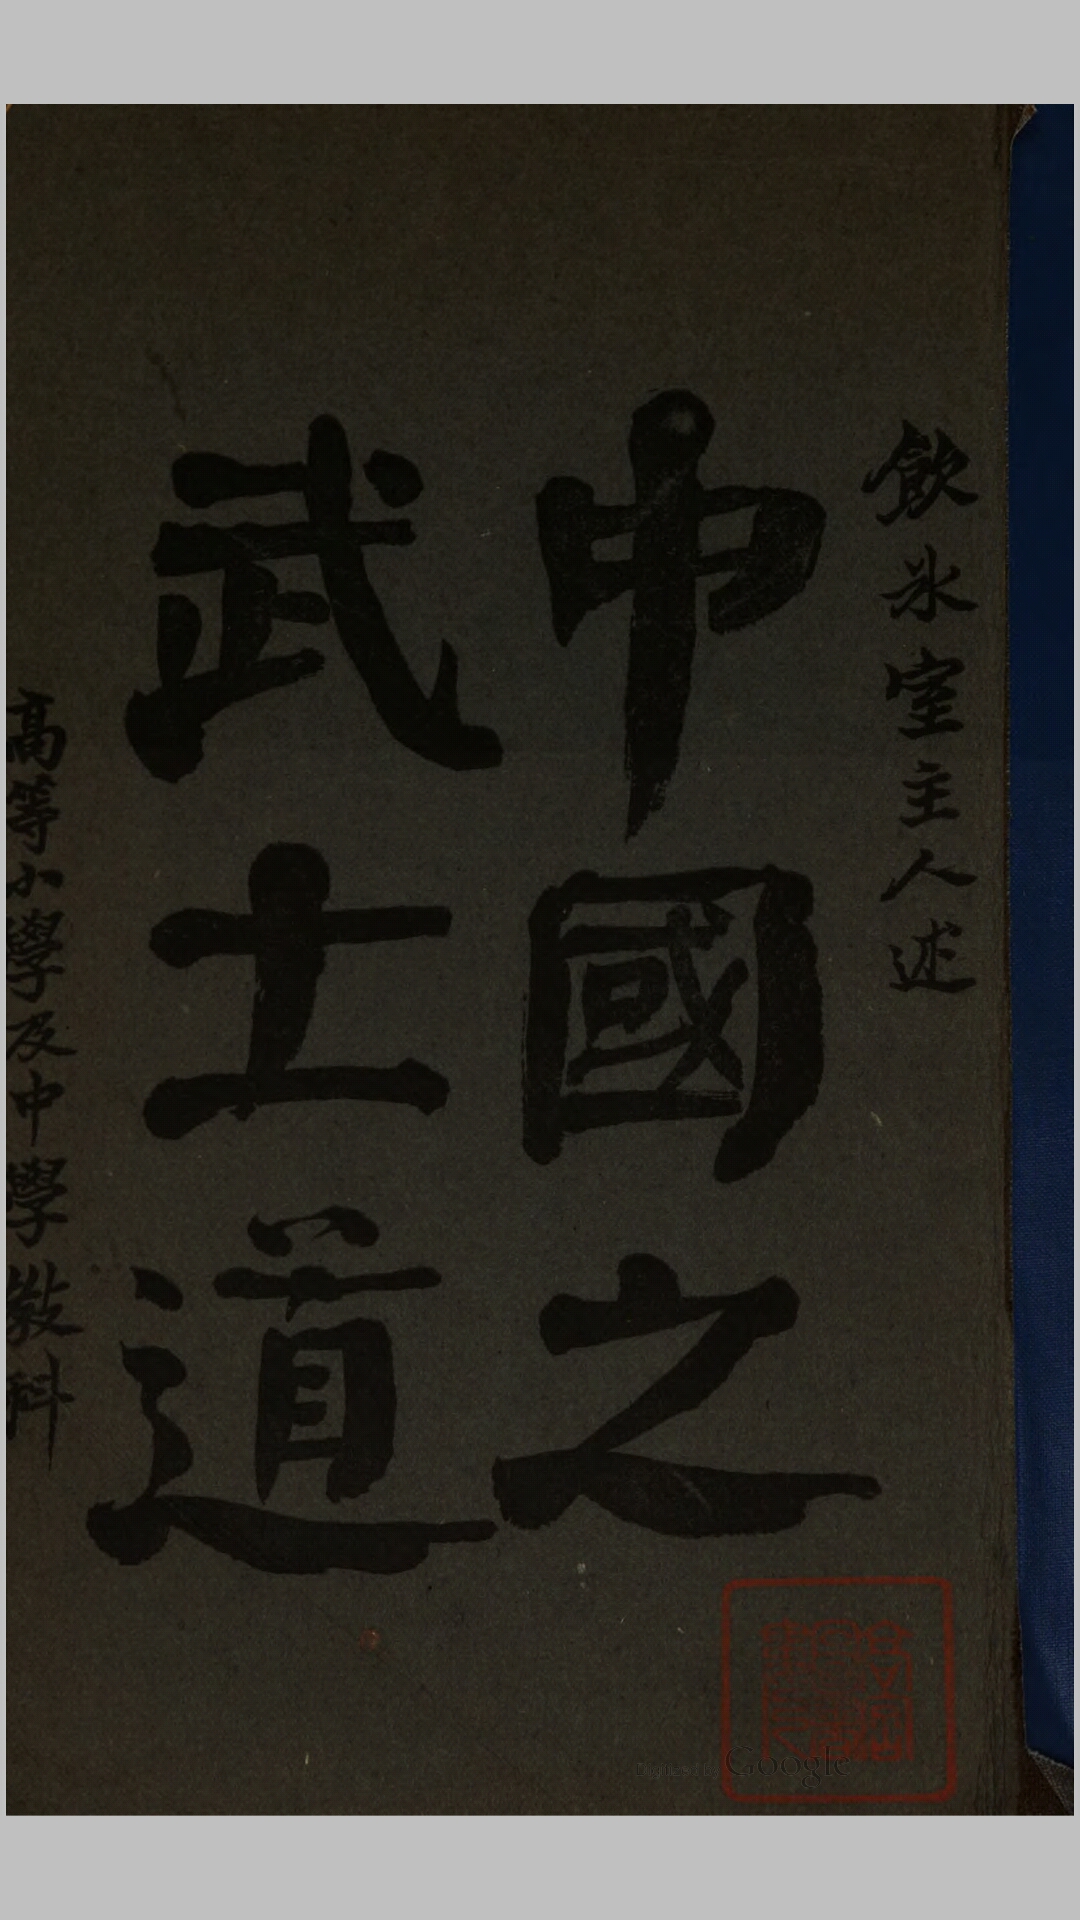 飲冰室主人述
中國之
武士道
高等小學及中學教科
Digitized by Google